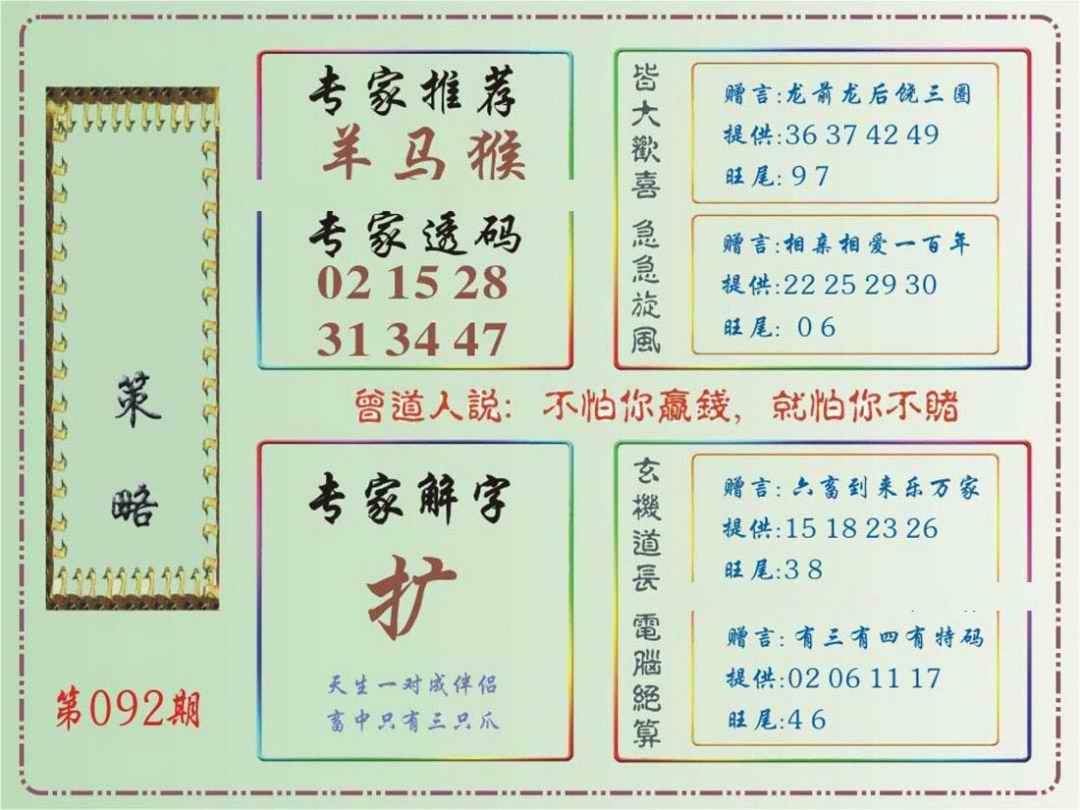 策略
第092期
专家推荐
羊马猴
专家透码
02 15 28
31 34 47
皆大歡喜
赠言:龙前龙后饶三圈
提供:36 37 42 49
旺尾: 9 7
急急旋風
赠言:相亲相爱一百年
提供:22 25 29 30
旺尾: 0 6
曾道人説: 不怕你贏錢, 就怕你不賭
专家解字
扩
天生一对成伴侣
畜中只有三只爪
玄機道長
赠言: 六畜到来乐万家
提供:15 18 23 26
旺尾:3 8
電腦絕算
赠言: 有三有四有特码
提供:02 06 11 17
旺尾:4 6